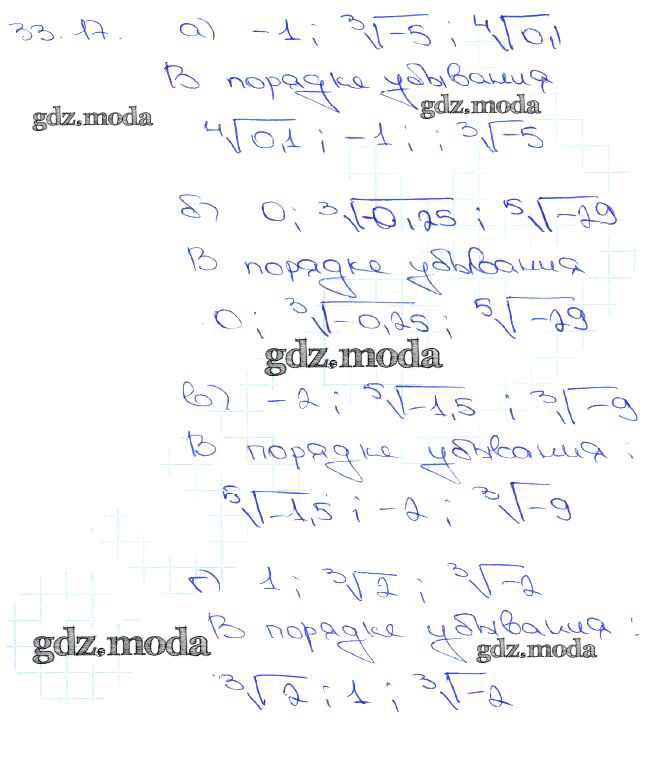 33.17. а) -1; ∛-5; ∜0,1
В порядке убывания
gdz.moda gdz.moda
∜0,1; -1; ; ∛-5
б) 0; ∛-0,25; ⁵√-29
В порядке убывания
0; ∛-0,25; ⁵√-29
gdz.moda
в) -2; ⁵√-1,5; ∛-9
В порядке убывания:
⁵√-1,5; -2; ∛-9
г) 1; ∛2; ∛-2
В порядке убывания:
gdz.moda gdz.moda
∛2; 1; ∛-2